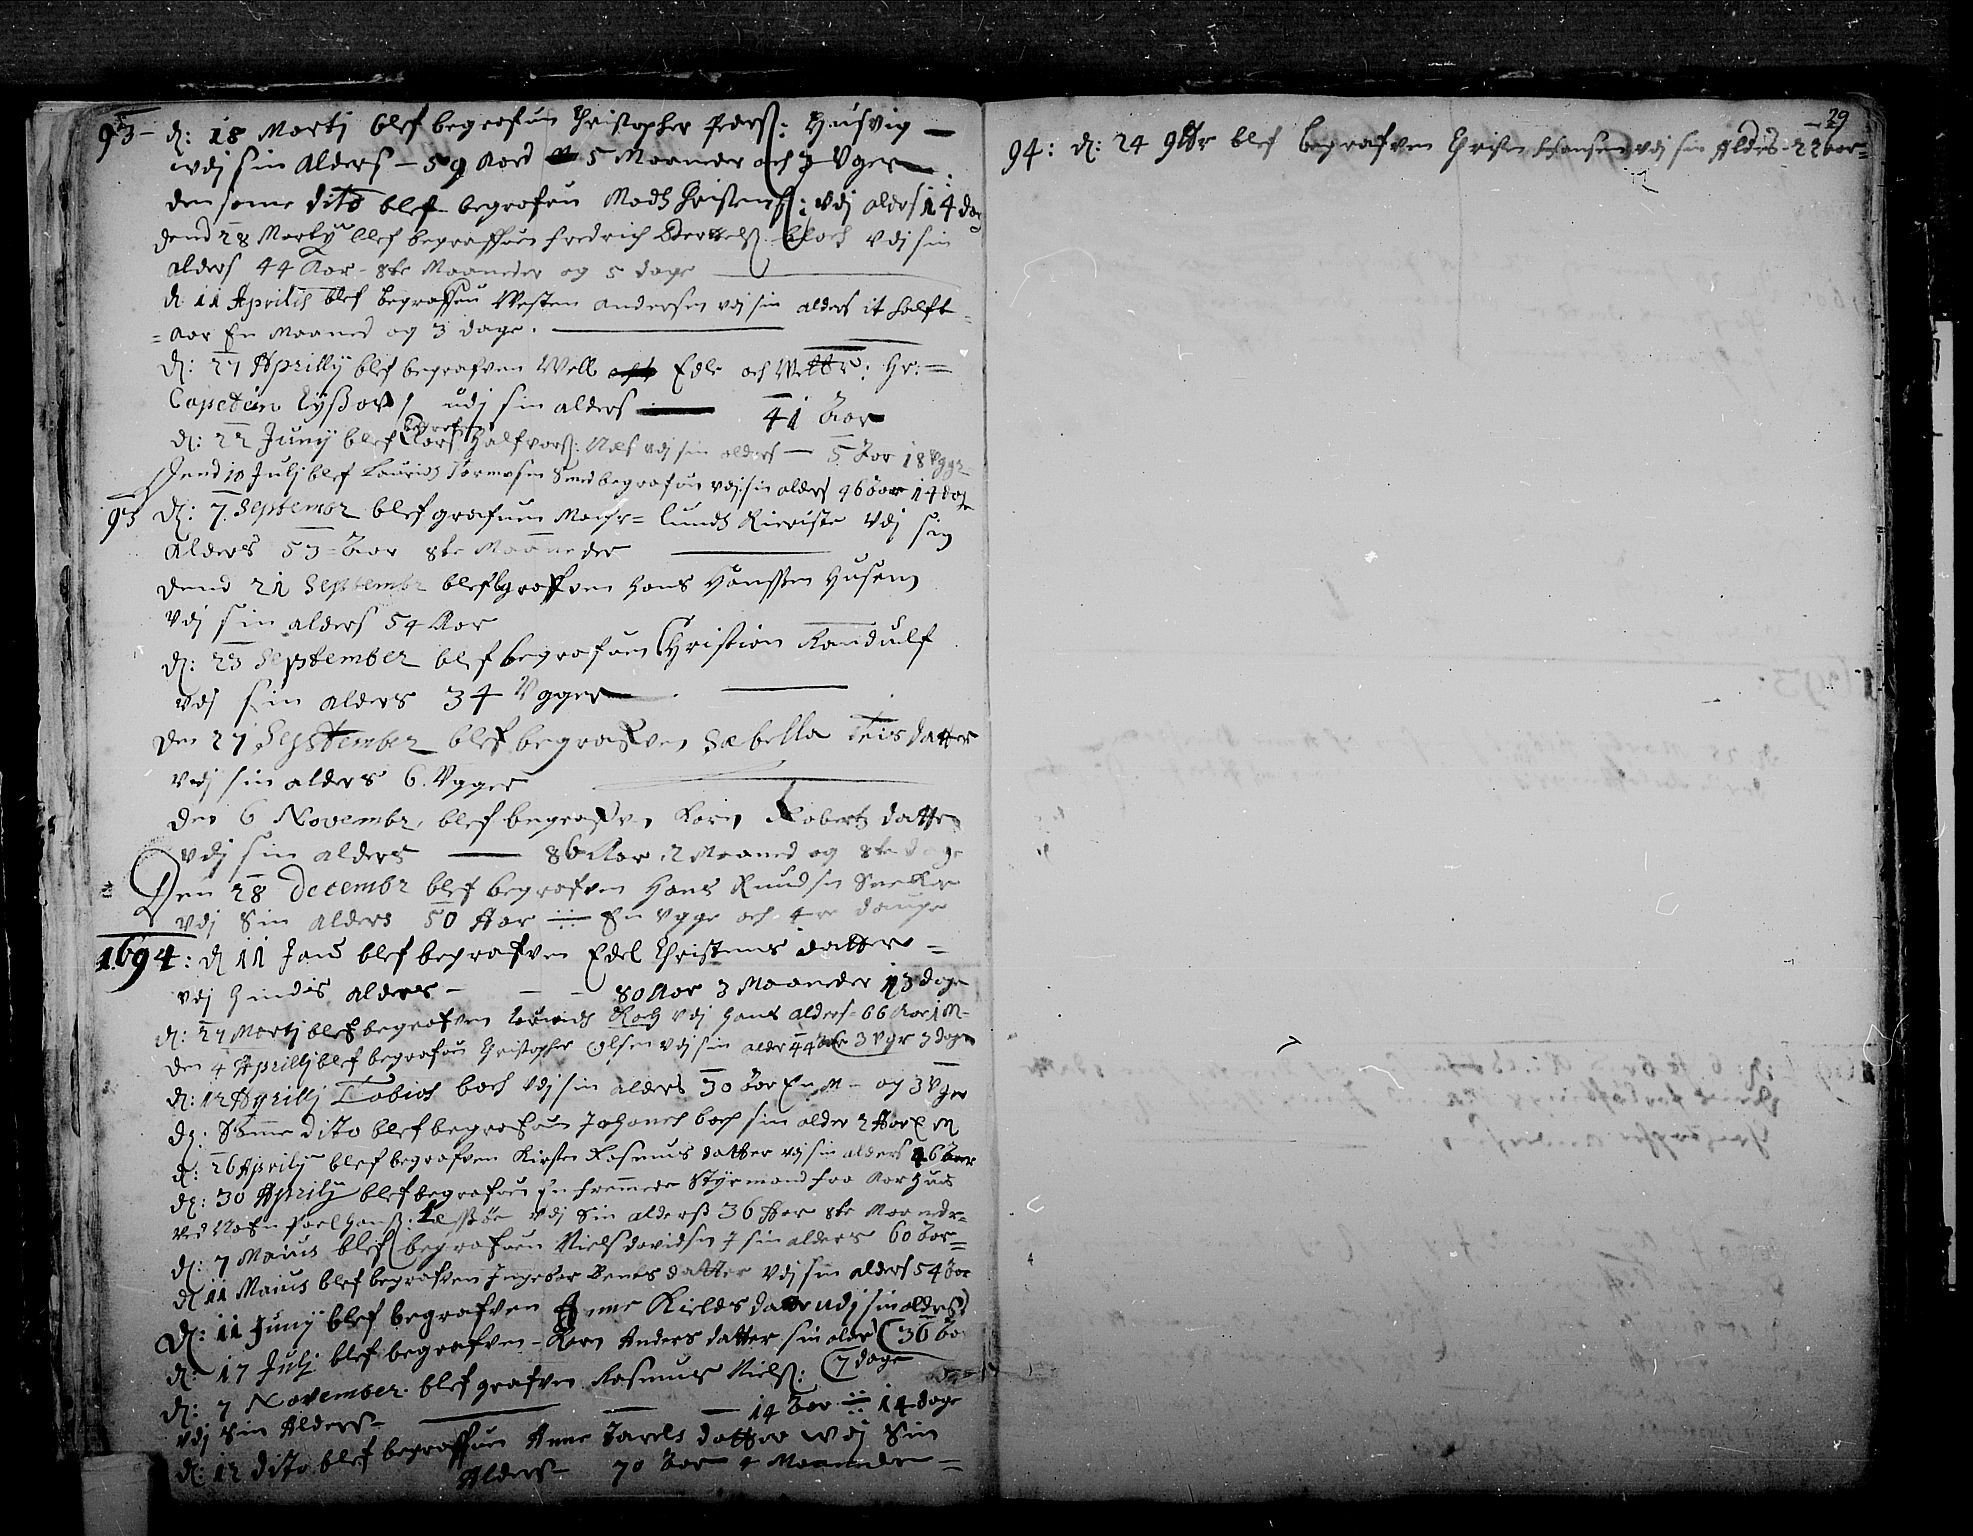 93 – d: 18 Martj blef begrafuen Christopher Pederß: Husvig –
udj sin Alders – 59 Aars 5 Maaneder och 3 Uger
den same dito blef begrafuen Madz Christenß: Vdj alders 14 dag
dend 28 Martij blef begraffuen fredrich Bertelß. bloch Vdj sin
alders 44 Aar – 8te Maaneder og 5 dage
d: 11 Aprilis blef begraffuen Westen Andersen vdj sin alders it halft =
= Aar En Maaned og 3 dage.
d: 27 Aprilly blef begrafven Well Edle och Hr: =
Capetein udj sin alders 41 Aar
d: 22 Junij blef begrafuen Lars Halfvorß: Næs vdj sin alders – 5 Aar 18 Vgger
dend 10 Julj blef Laurids Tormosen Smed begrafuen vdj sin alders 46 Aar 14 dag
93 d: 7. Septembr blef grafuen Vdj sin
Alders 53 – Aar 8te Maaneder
dend 21 Septembr blef bgraffven Hans Hanssen Husum
Vdj sin alders 54 Aar
d: 23 September blef begrafuen Christian Randulf
vdj sin alders 34 Vgger
den 27 September blef begrafven Sabella Teis datter
vdj sin alders 6. Vgger
den 6 Novembr, blef begrafven Karn Roberts datter
vdj sin alders – 86 Aar 2 Maaned og 8te dage
Den 28 Decembr blef begrafven Hans Knudsn
vdj Sin alders 50 Aar En Vgge och 4re dauge
1694: d 11 Jan blef begrafven Edel Christens datter =
vdj hindis alders – – – 80 Aar 3 Maaneder 13 dage
d: 27 Martj blef begrafven Laurids Vdj hans alders 66 Aar 1 M –
den 4 Aprillj blef begrafuen Christopher Olsen Vdj sin alder 44 Aar 3 Vgr 3 dage
d: 12 Aprillj Tobias boch Vdj sin alders 30 Aar En M – og 3 Vger
d: Samme dito blef begrafuen Johanes boch sin alder 2 Aar
d: 26 Aprilij blef begrafven Kirsten Rasmus datter vdj sin alders 46 Aar
d: 30 Aprilij blef begrafuen en fremmede Styrmand fra Aarhus
ved Nafn Poel Hanß: Vdj Sin alderß 36 Aar 8te Maaneder –
d: 7 Maius blef begrafuen Niels davidsn J sin alders 60 Aar =
d 11 Maius blef begrafven Ingebor Bents datter Vdj sin alders 54 Aar
d: 11 Junij blef begrafven Anne Kields datter udj sin alders
d: 17 Julj blef begrafven – Karn Anders datter sin alder (36 Aar
d: 7 November. blef grafven Rasmus Nielß: (7 dage
vdj sin Alders – – – 14 Aar 14 dage
d: 12 dito blef begraffuen Anne Jacobs datter udj Sin
Alders – 70 Aar Maaneder =
29
94: d: 24 9br blef begrafven Christen Hansen vdj sin Alders 22 Aar =